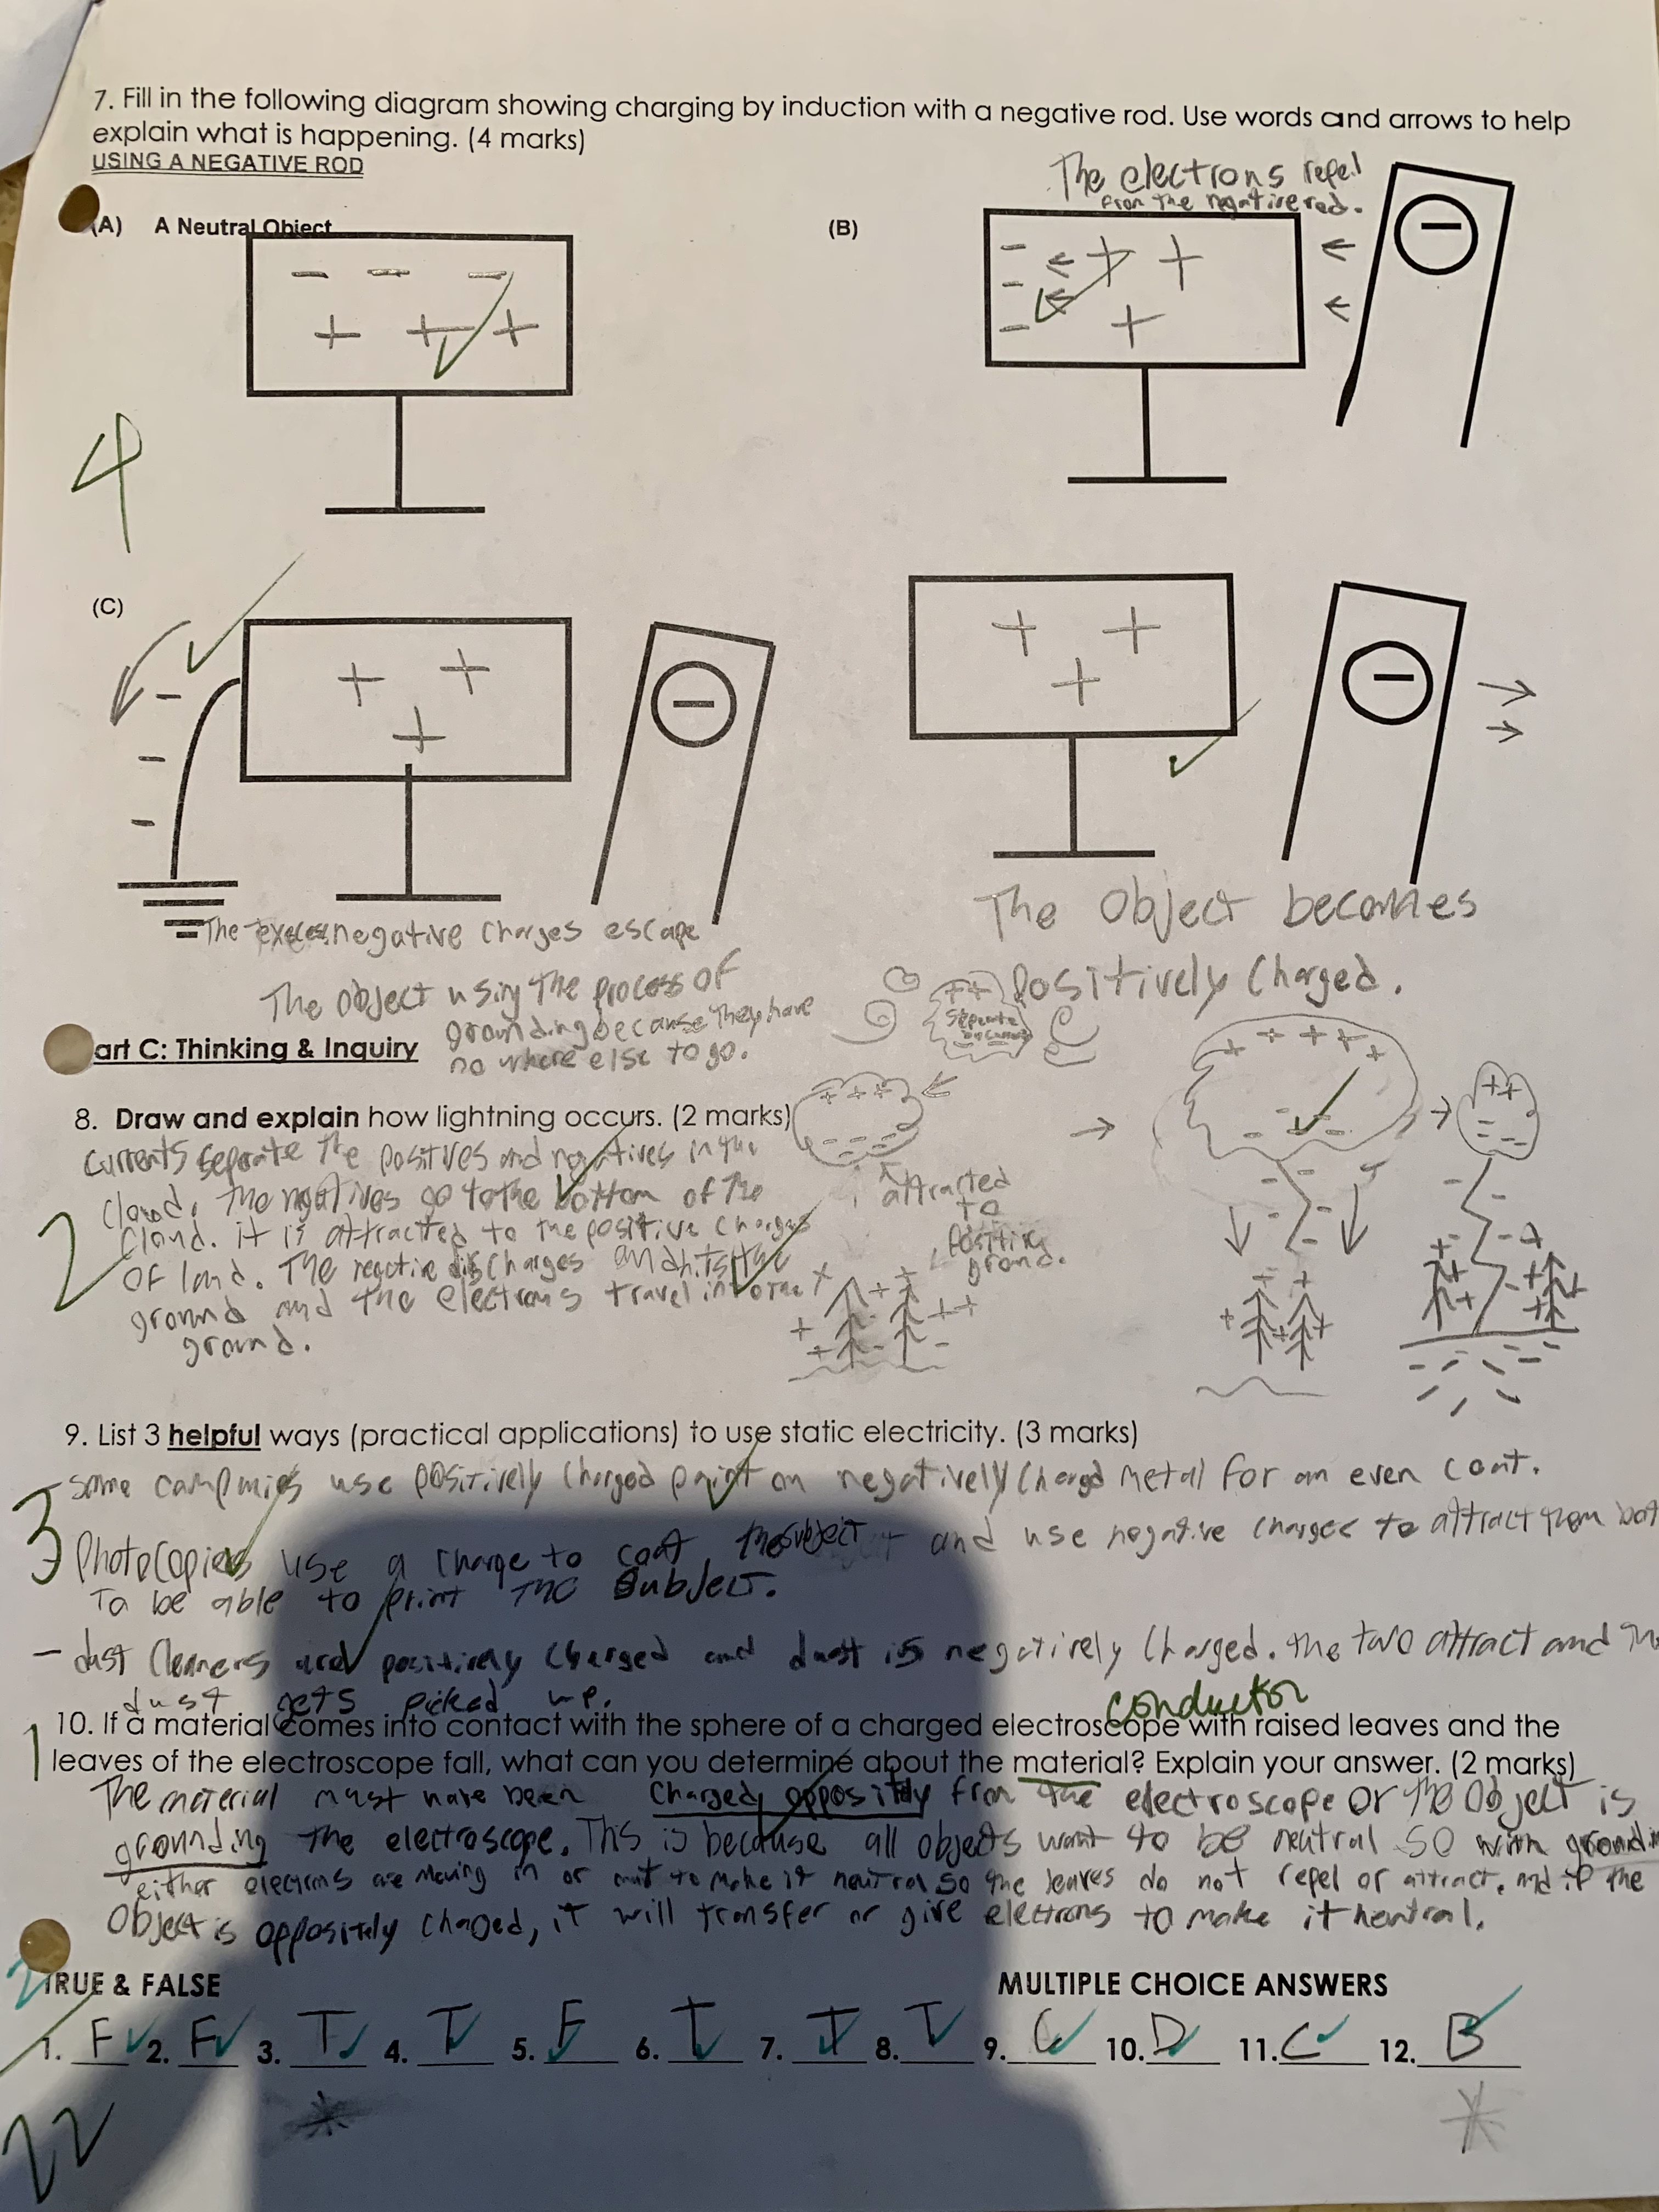 7. Fill in the following diagram showing charging by induction with a negative rod. Use words and arrows to help
explain what is happening. (4 marks)
USING A NEGATIVE ROD
The electrons repel
from the negative rod.
(A) A Neutral Object
(B)
− − −
+ + +
− + +
−
− +
−
4
(C)
+ +
+
−
−
−
−
+ +
+
−
The negative charges escape
The object using the process of
grounding because they have
no where else to go.
The object becomes
positively charged.
art C: Thinking & Inquiry
++
Seperate
8. Draw and explain how lightning occurs. (2 marks)
currents seperate the positives and negatives in the
cloud. The negatives go to the bottom of the
cloud. it is attracted to the positive charges
of land. The negative discharges and hits the
ground and the electrons travel into the
ground.
2
attracted
to
positive
grond.
9. List 3 helpful ways (practical applications) to use static electricity. (3 marks)
- some companies use positively charged paint on negatively charged metal for an even coat.
3
Photocopiers use a charge to coat the subject and use negative charges to attract them
To be able to print the subject.
- dust cleaners are positively charged and dust is negatively charged. the two attract and
dust gets picked up.
conductor
10. If a material comes into contact with the sphere of a charged electroscope with raised leaves and the
leaves of the electroscope fall, what can you determine about the material? Explain your answer. (2 marks)
1
The material must have been charged oppositly from the electroscope or the object is
grounding the electroscope. This is because all objects want to be neutral so with
either electrons are moving in or out to make it neutral so the leaves do not repel or attract. and if the
object is oppositely chaged, it will transfer or give electrons to make it neutral.
TRUE & FALSE MULTIPLE CHOICE ANSWERS
1. F 2. F 3. T 4. T 5. F 6. T 7. T 8. T 9. C 10. D 11. C 12. B
22